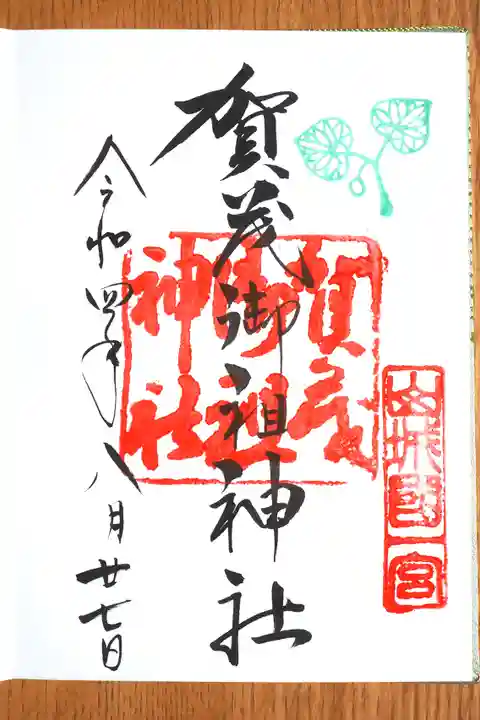 山城國一宮
賀茂御祖神社
賀茂
御祖
神社
令和四年八月廿七日